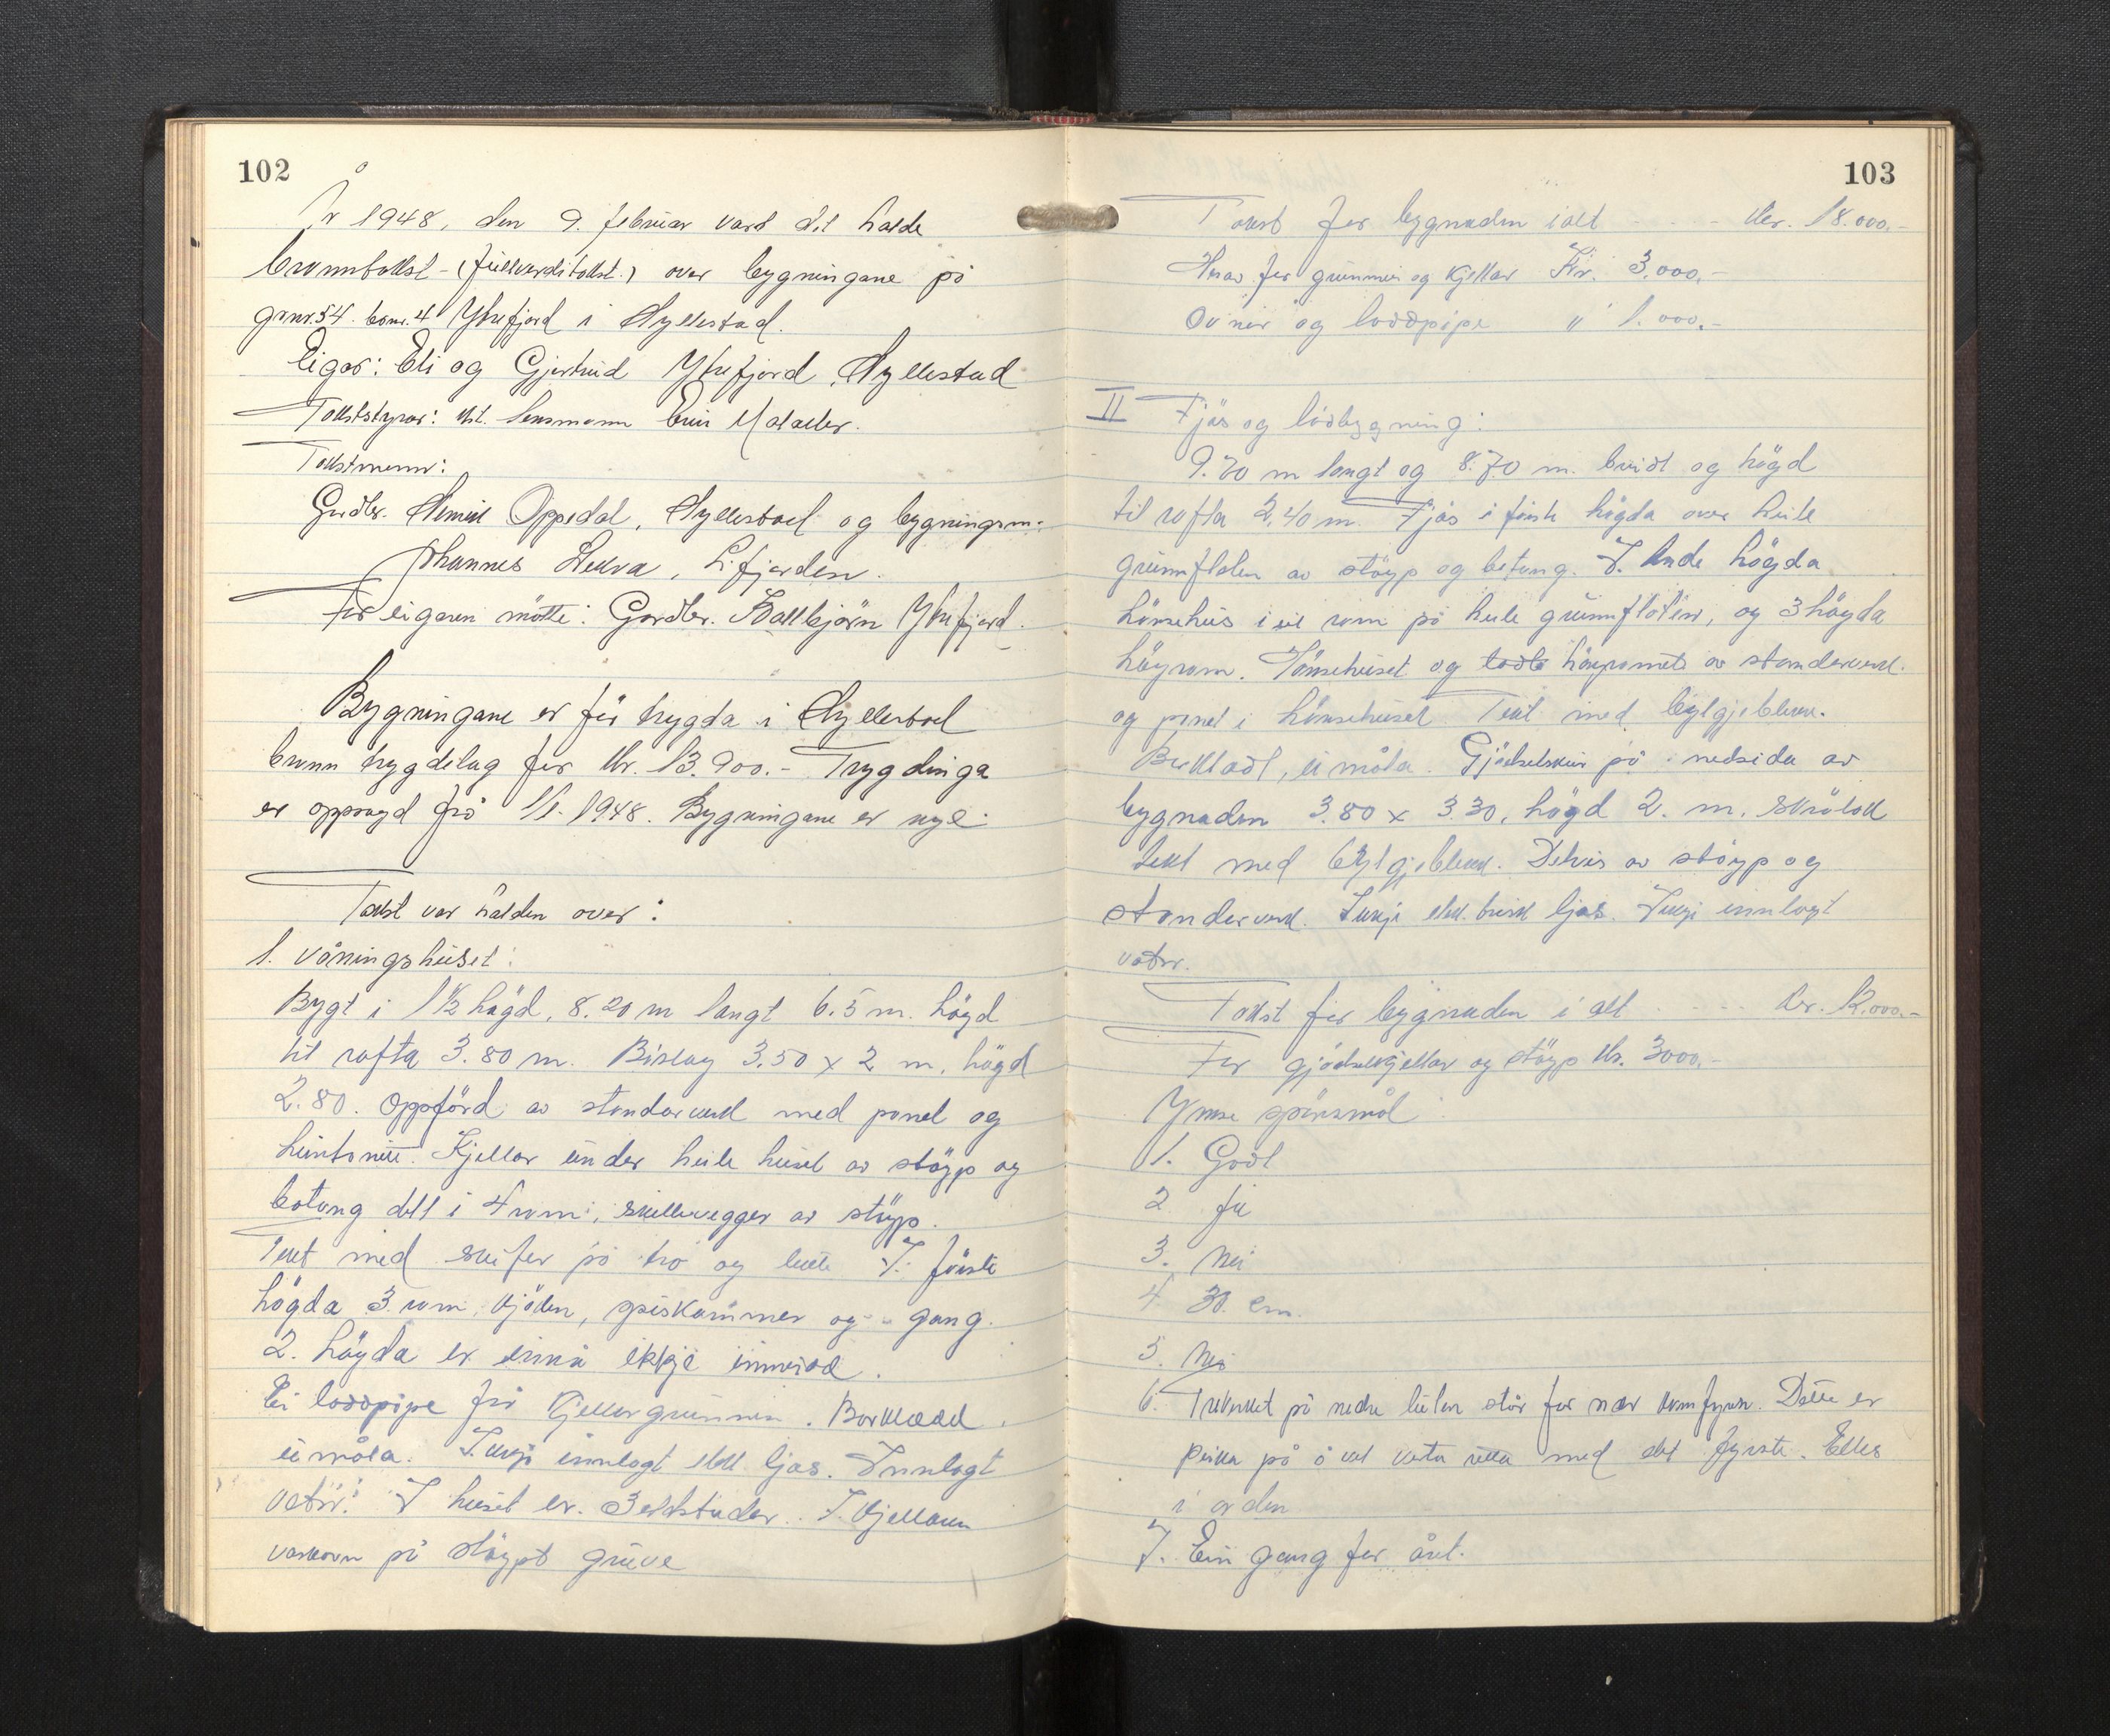 102
År 1948, den 9. februar vart det halde
branntakst - (fullverditakst.) over bygningane på
grnr. 54. bnr. 4 Ytrefjord i Hyllestad.
Eigar: Eli og Gjertrud Ytrefjord, Hyllestad
Takststyrar: kst. lensmann
Takstmenn:
Gardbr. Oppedal, Hyllestad og bygningsm.
Johannes Lekva, Lifjorden.
For eigaren møtte: Gardbr. Ytrefjord.
Bygningane er før trygda i Hyllestad
brann trygdelag for Kr. 13.900.- Trygdinga
er oppsagd frå 1/1-1948. Bygningane er nye.
Takst var halden over:
1. Våningshuset:
Bygt i 1 1/2 høgd, 8.20 m langt 6.5 m. høgd
til rafta 3.80 m. Bislag 3.50 x 2 m, høgd
2.80. Oppførd av standarverk med panel og
huntonitt. Kjellar under heile huset av støyp og
betong delt i 4 rom, skillevegger av støyp.
Tekt med skifer på tro og lekte I. første
høgda 3 rom, kjøken, spiskammer og gang.
2. høgda er ennå ikkje innreidd.
Ei loddpipe frå kjellargrunnen. Borkledd
ei måla. Ikkje innlagt elek ljos. Innlagt
vatn. I huset er 3 eldstader. I kjellaren
vaskovn på støypt grue
103
Takst for bygnaden i alt - - - - Kr. 18.000.-
Herav for grunnmur og kjellar Kr. 3.000.-
Ovner og loddpipe " 1.000.-
II Fjøs og lødbygning:
9.70 m langt og 8.70 m. breidt og høgd
til rafta 2,40 m. Fjøs i første høgda over heile
grunnflaten av støyp og betong. I. Andre høgda
hønsehus i eit rom på heile grunnflaten, og 3 høgda
høyrom. Hønsehuset og høyromet av standerverk.
og panel i hønsehuset Tekt med bylgjeblekk.
Borkladt, ei måla. Gjødselskur på nedsida av
bygnaden 3.80 x 3.30, høgd 2. m. skråtak
tekt med bylgjeblekk. Delvis av støyp og
standerverk. Ikkje elektrisk ljos. Ikkje innlagt
vatn.
Takst for bygnaden i alt - - - - Kr. 12.000.-
For gjødselkjellar og støyp Kr. 3000.-
Ymse spørsmål:
1. Godt
2 Ja
3. Nei
4 30. cm.
5. Nei
6. Treverket på nedre luten står for nær komfyren. Dette er
peika på å vert retta med det fyrste. Elles
i orden
7. Ein gang for året.